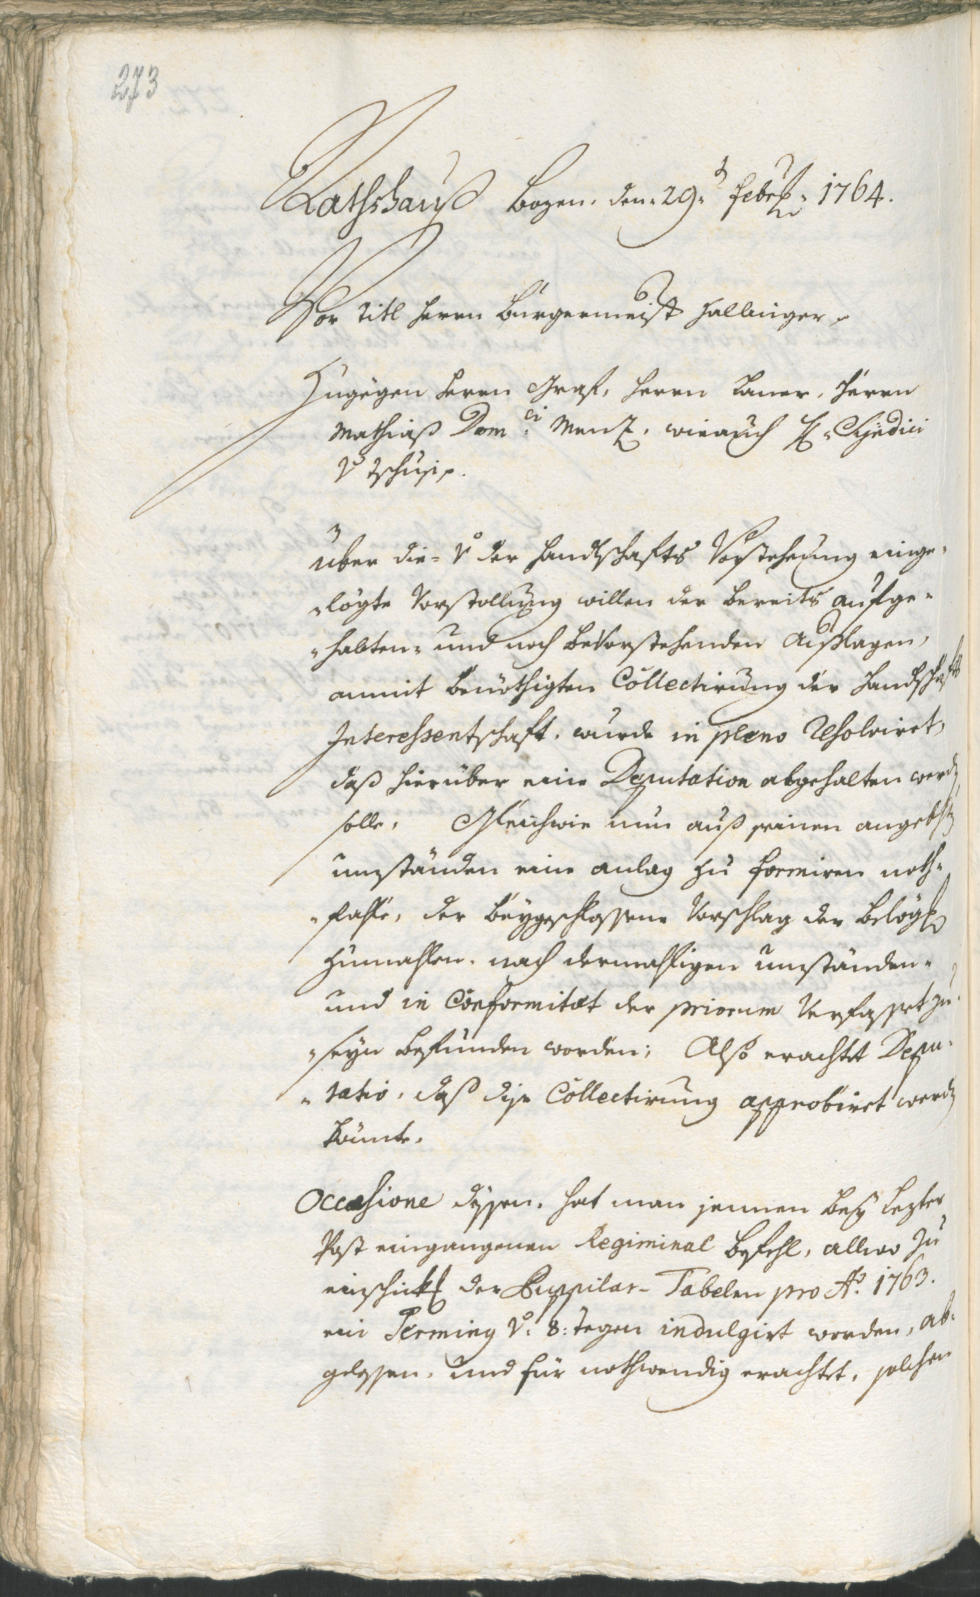 273
Rathshauß Bozen, den 29.t Febr: 1764.
Vor Titl Herrn Burgermeist Hallinger
Zugegen Herrn Graf, Herrn Kaner, Herrn
Mathiaß Domci: Menz, wie auch H: Syndici
V: Tschusi
über die v: der Handlschafts Vorstehung einge-
-lögte Vorstellung willen der bereits aufge-
-habten- und noch bevorstehenden Außlagen,
anmit benöthigten Collectirung der Handlschafts
Interessentschaft, wurde in pleno resolviret,
daß hierüber eine Deputation abgehalten werden
solle. Gleichwie nun auß seinen angebhten
umständen eine anlag zu formiren noth-
-fahle, der beygeschlossene Vorschlag der belögh
zumahlen, nach dermahligen umständen-
und in Conformitæt der priorum Verfasset zu
-seyn befunden worden; Also erachtet Depu-
-tatio, daß dise Collectirung approbiret werden
könnte.
Occasione dessen, hat man jennen bey lezter
Post eingangenen Regiminal Befehl, allwo zu
einschickh der Puppilar-Tabelen pro Ao. 1763.
ein Terming v: 8: tegen indulgirt worden, ab-
gelesen, und für nothwendig erachtet, solchen